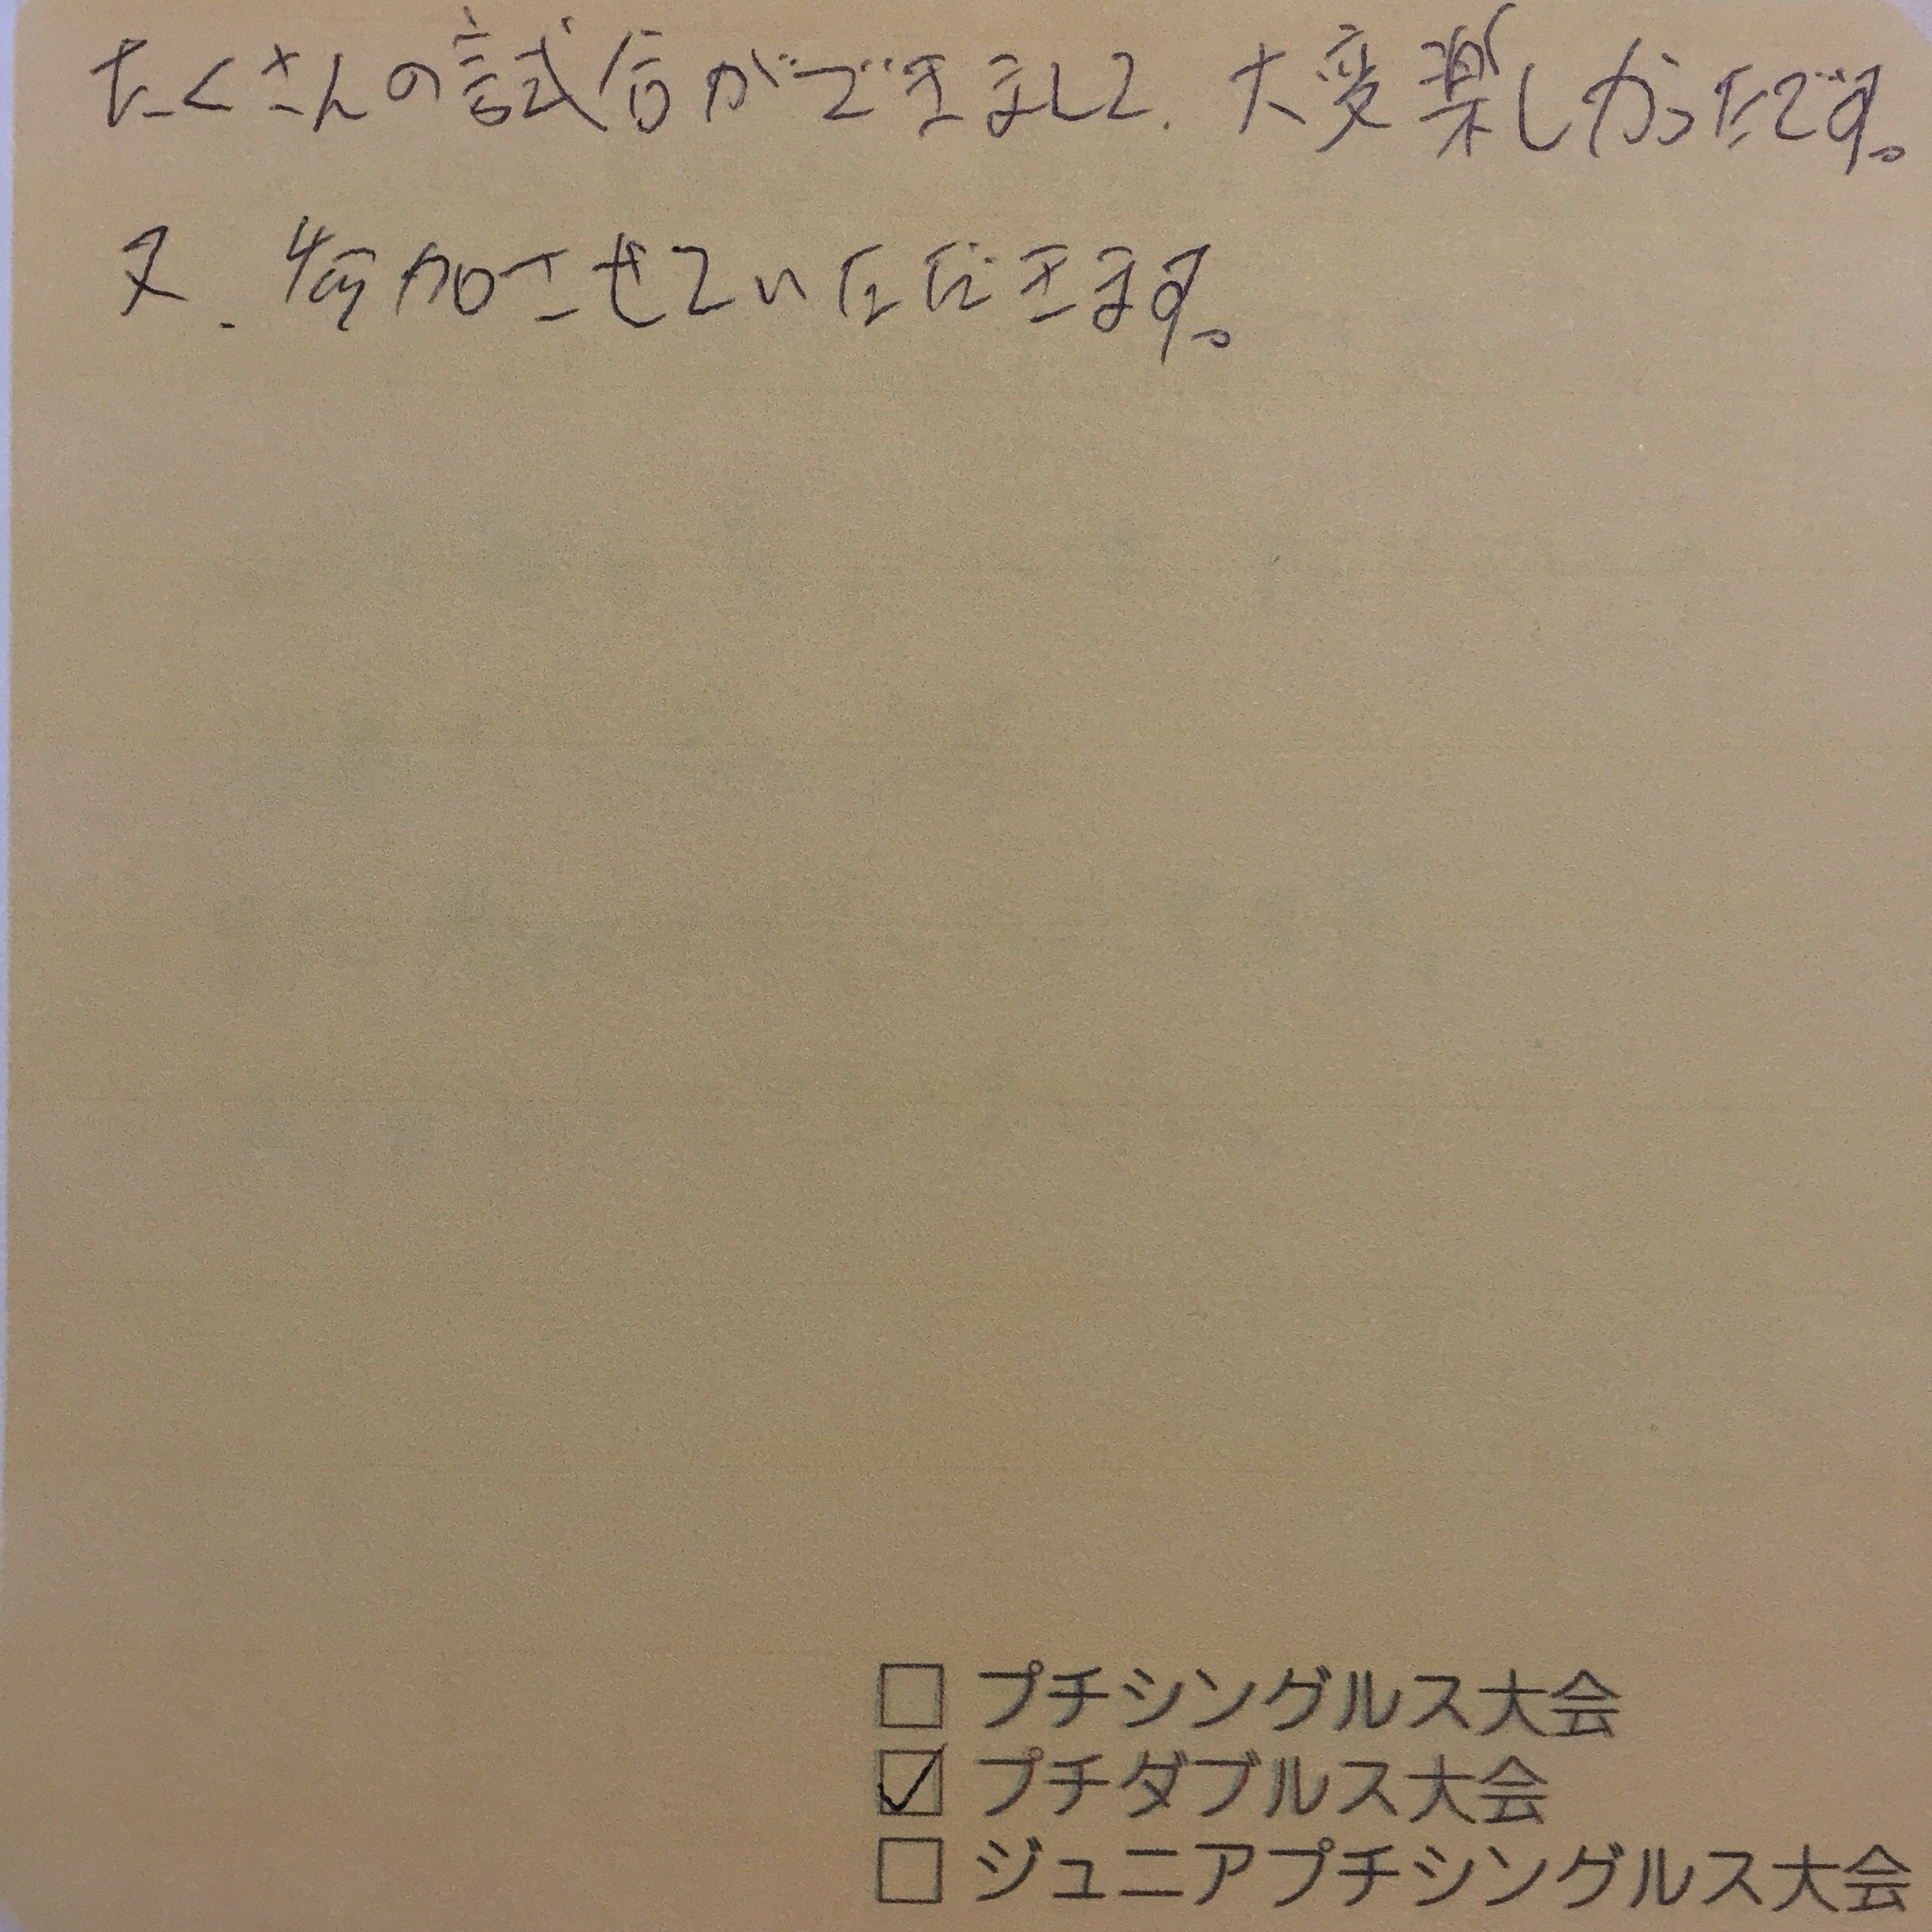 たくさんの試合ができまして、大変楽しかったです。
又、参加させていただきます。
□ プチシングルス大会
☑ プチダブルス大会
□ ジュニアプチシングルス大会